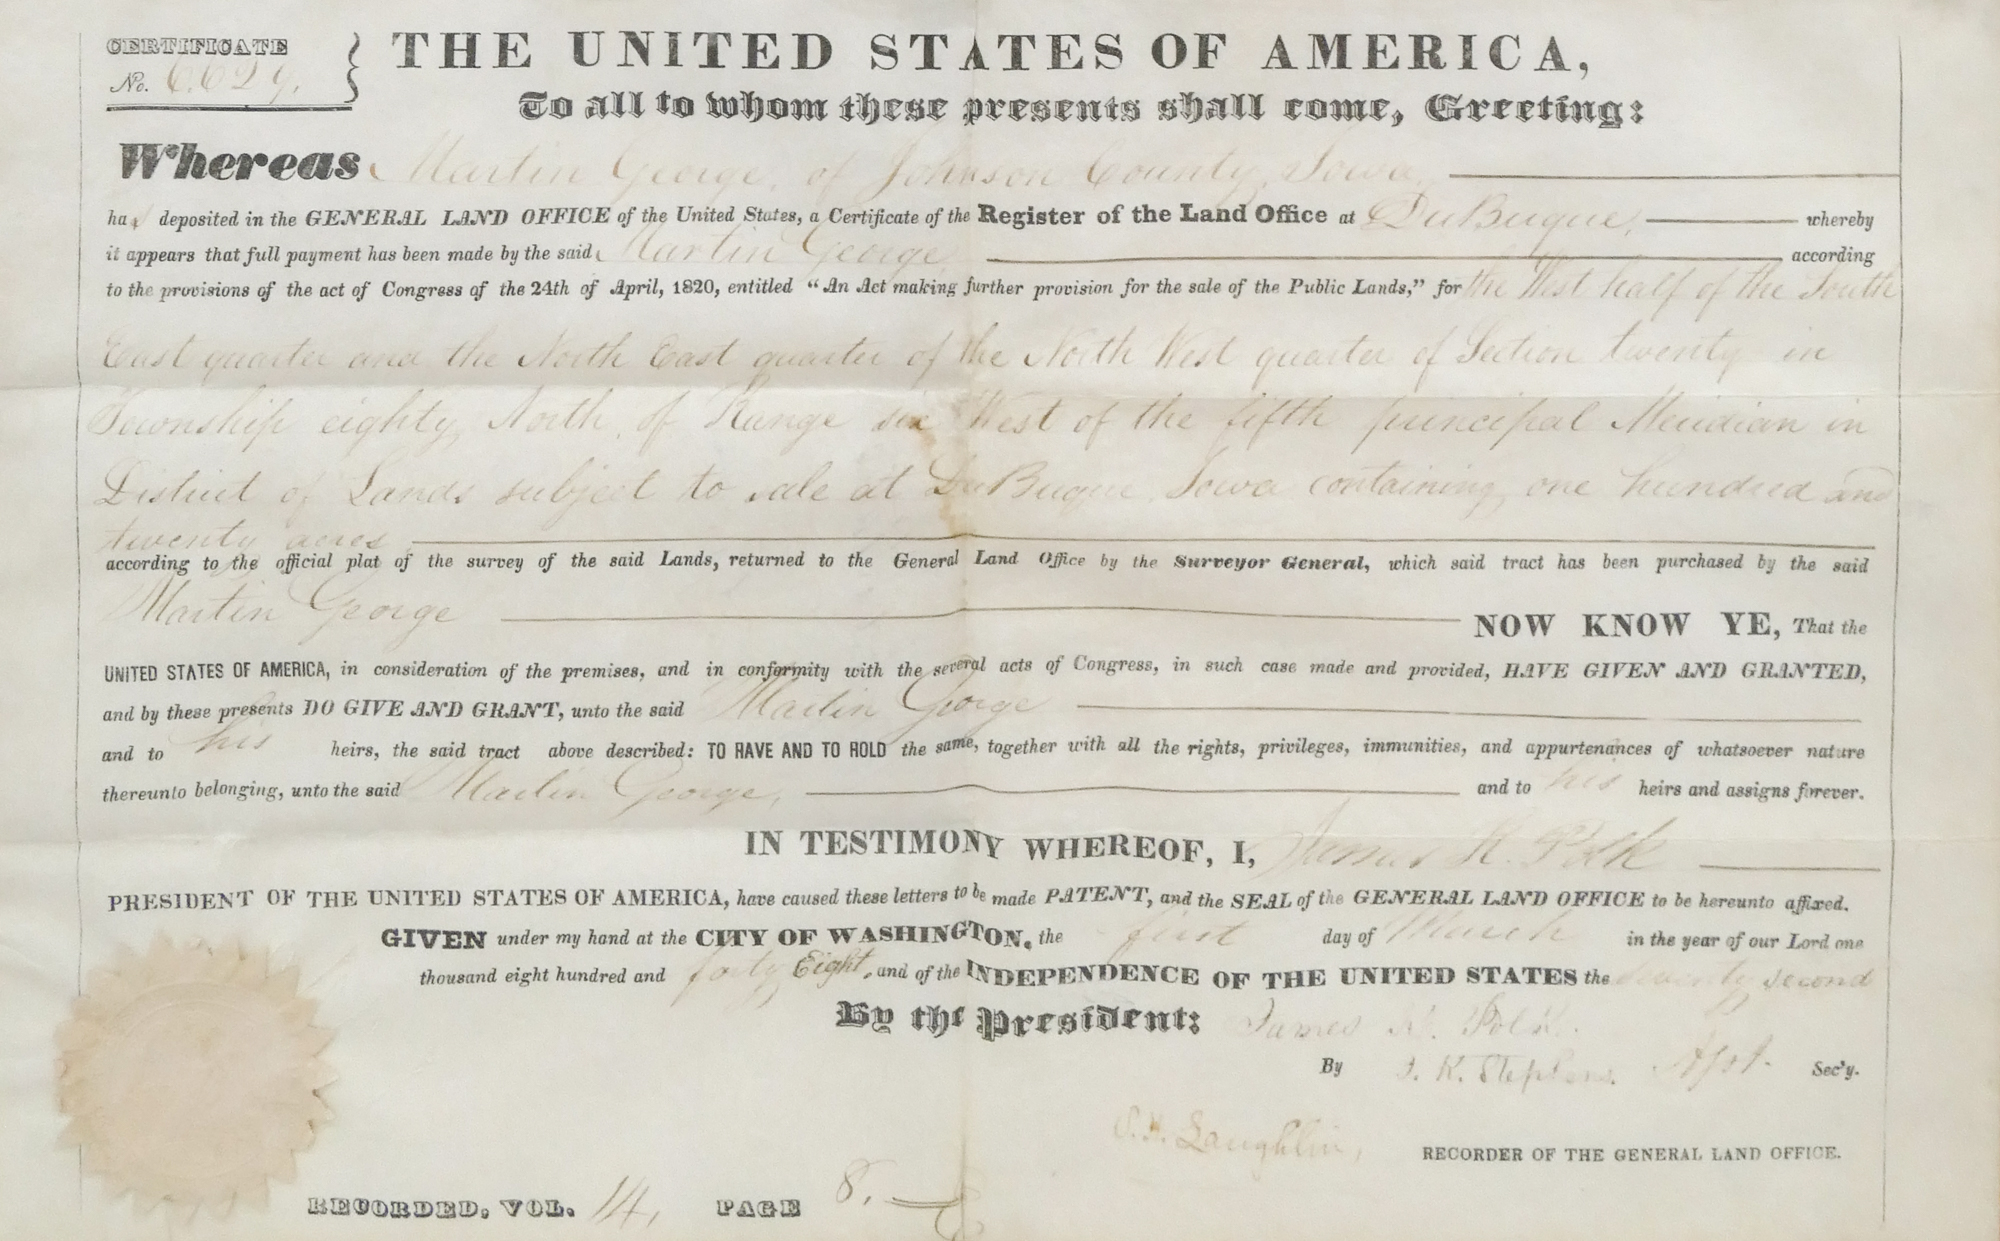 CERTIFICATE
No. 6629.
THE UNITED STATES OF AMERICA,
To all to whom these presents shall come, Greeting:
Whereas Martin George, of Johnson County, Iowa,
has deposited in the GENERAL LAND OFFICE of the United States, a Certificate of the Register of the Land Office at DuBuque, whereby
it appears that full payment has been made by the said Martin George according
to the provisions of the act of Congress of the 24th of April, 1820, entitled "An Act making further provision for the sale of the Public Lands," for the West half of the South
East quarter and the North East quarter of the North West quarter of Section twenty in
Township eighty North, of Range six West of the fifth principal Meridian in
District of Lands subject to sale at DuBuque Iowa containing one hundred and
twenty acres
according to the official plat of the survey of the said Lands, returned to the General Land Office by the Surveyor General, which said tract has been purchased by the said
Martin George NOW KNOW YE, That the
UNITED STATES OF AMERICA, in consideration of the premises, and in conformity with the several acts of Congress, in such case made and provided, HAVE GIVEN AND GRANTED,
and by these presents DO GIVE AND GRANT, unto the said Martin George
and to his heirs, the said tract above described: TO HAVE AND TO HOLD the same, together with all the rights, privileges, immunities, and appurtenances of whatsoever nature
thereunto belonging, unto the said Martin George, and to his heirs and assigns forever.
IN TESTIMONY WHEREOF, I, James K. Polk
PRESIDENT OF THE UNITED STATES OF AMERICA, have caused these letters to be made PATENT, and the SEAL of the GENERAL LAND OFFICE to be hereunto affixed.
GIVEN under my hand at the CITY OF WASHINGTON, the first day of March in the year of our Lord one
thousand eight hundred and forty Eight, and of the INDEPENDENCE OF THE UNITED STATES the seventy second
By the President: James K. Polk.
By J. K. Stephens. Sec'y.
S. H. Laughlin, RECORDER OF THE GENERAL LAND OFFICE.
RECORDED, VOL. 14, PAGE 8.